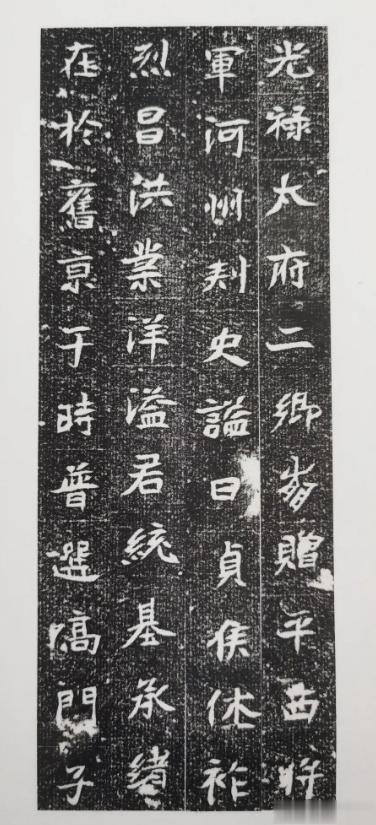 光祿太府二卿贈平西將
軍河州刾史謚曰貞侯休祚
烈昌洪業洋溢君統基承緒
在於舊京于時普選高門子